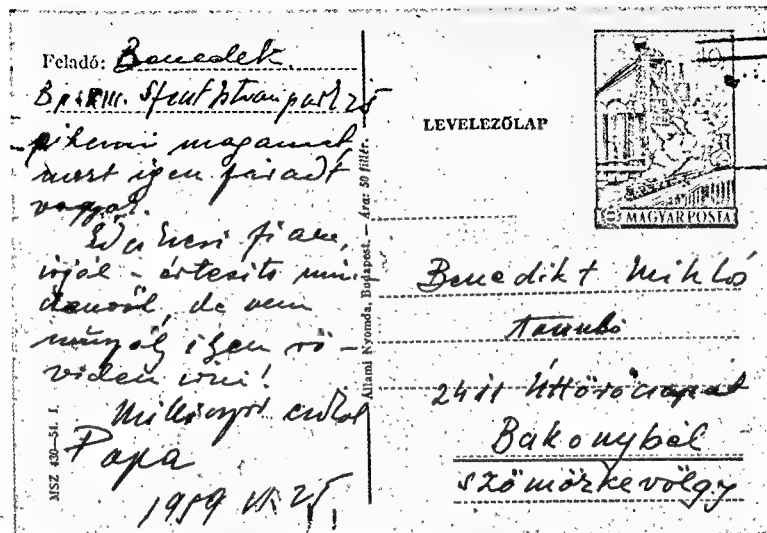 Feladó: Benedek
Bp. XIII. Szent István park 25
pihenni magamat,
mert igen fáradt
vagyok.
Édes fiam,
írjál - értesíts min-
denről, de nem
muszáj igen rö-
viden írni!
Milliószor csókol
Papa
1959 VI. 25.
MSZ 430—54. I.
Állami Nyomda, Budapest. — Ára: 50 fillér.
LEVELEZŐLAP
MAGYAR POSTA
Benedikt Mikló
Tanuló
Úttörőcsapat
Bakonybél
Szömörkevölgy